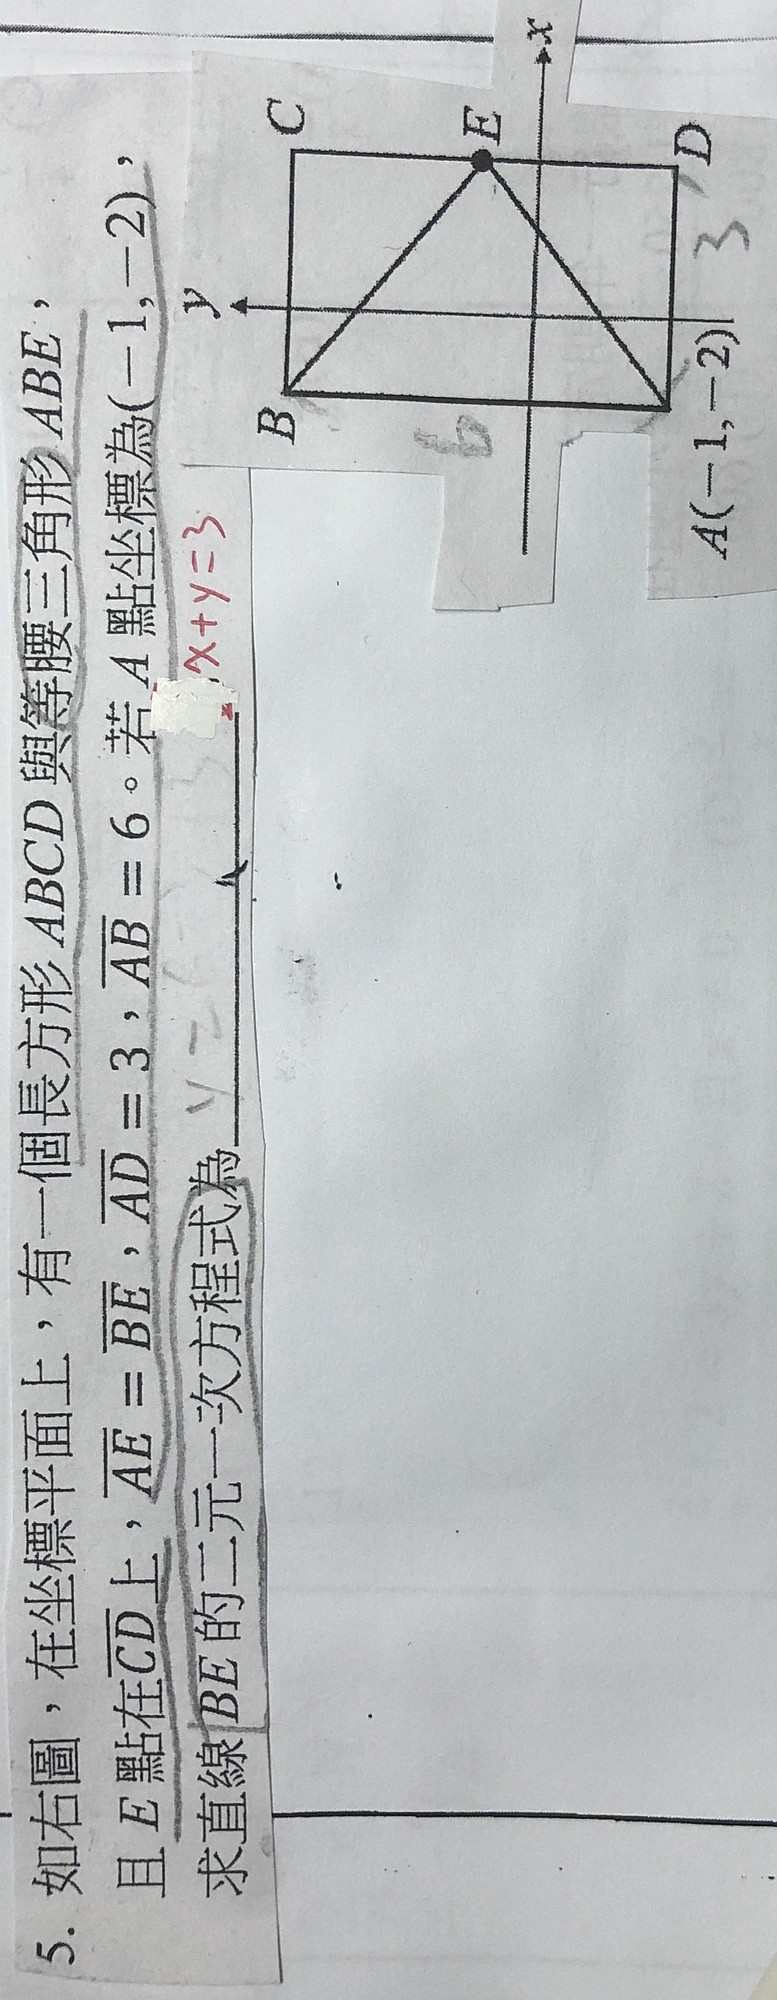 5. 如右圖，在坐標平面上，有一個長方形 ABCD 與等腰三角形 ABE，
且 E 點在CD上，AE = BE，AD = 3，AB = 6。若 A 點坐標為(−1,−2)，
求直線 BE 的二元一次方程式為
x+y=3
y
x
B
C
E
D
A(−1,−2)
6
3